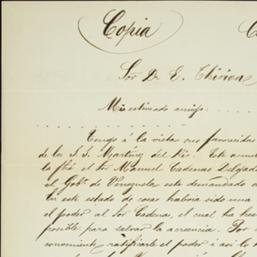 Copia
Sor Dr E. Thirion
Mi estimado amigo:
Tengo á la vista sus favorecidas
de los S.S. Martinez del Rio. Este
la fhá el Sor Manuel Cadenas Delgado
el Gobo de Venezuela este demandado
En este estado de cosas habria sido una
el poder al Sor Cadenas, el cual ha hecho
posible para salvar la acreencia. Por
ratificarle el poder i asi lo
de Venezuela